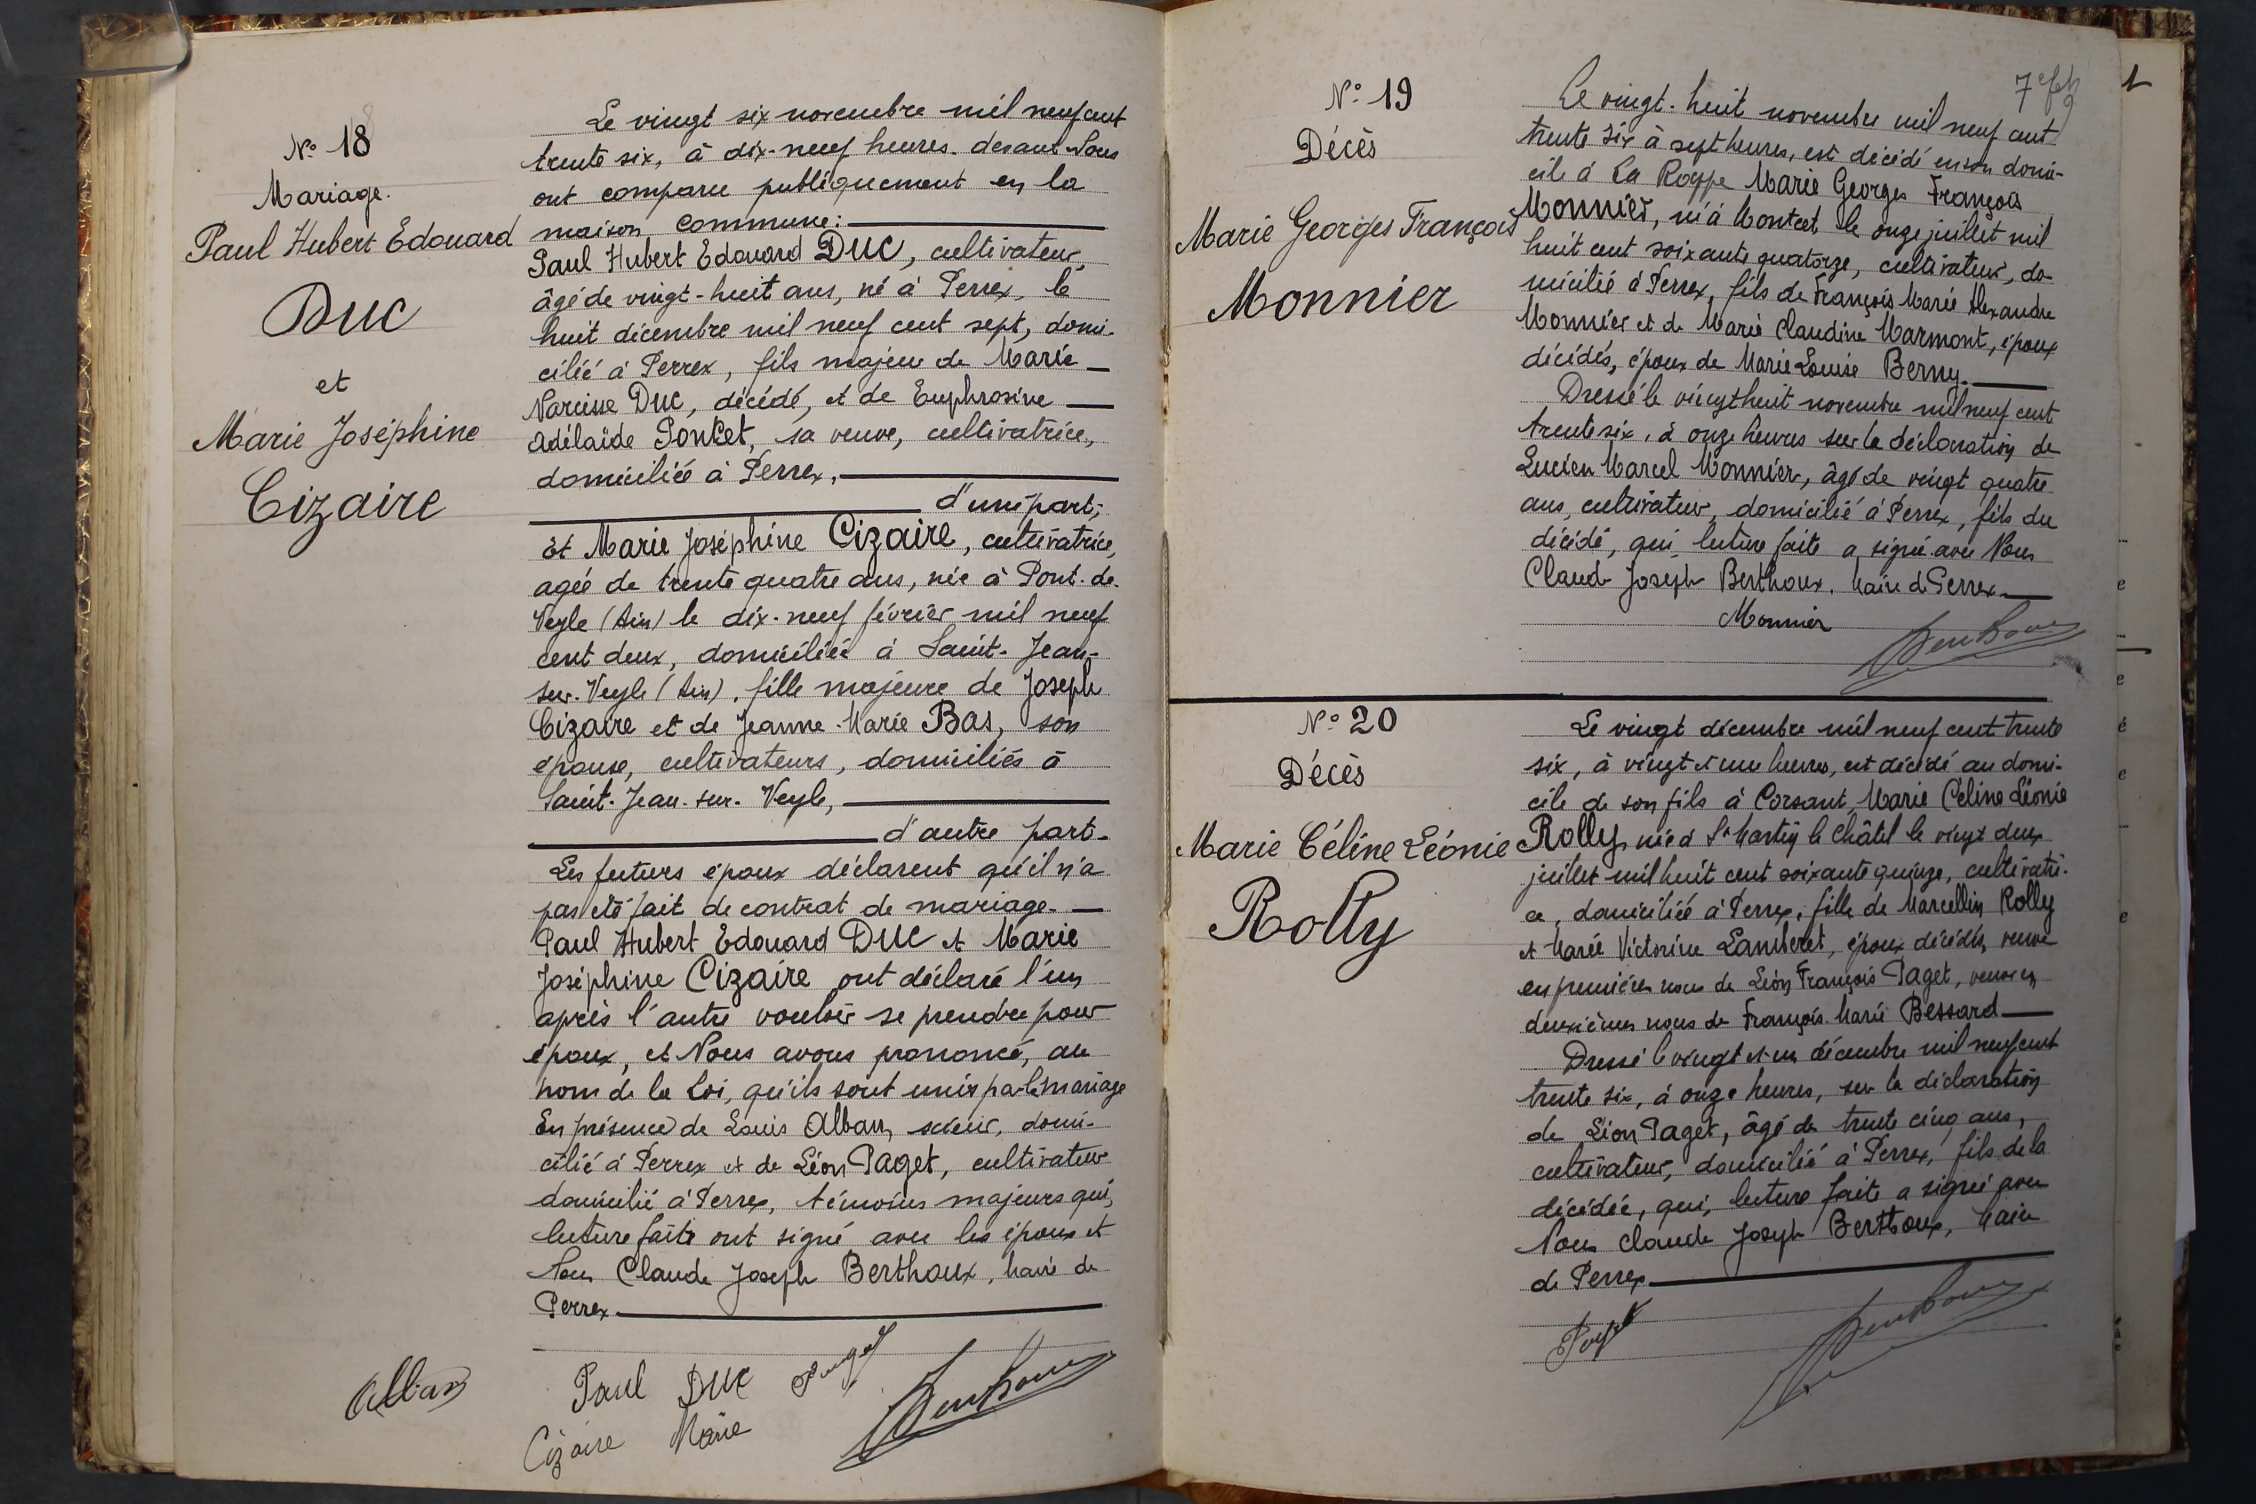 Nº 18
Mariage.
Paul Hubert Edouard
Duc
et
Marie Joséphine
Cizaire
Le vingt six novembre mil neuf cent
trente six, à dix-neuf heures. devant Nous
ont comparu publiquement en la
maison commune:
Paul Hubert Edouard Duc, cultivateur,
âgé de vingt-huit ans, né à Perrex, le
huit décembre mil neuf cent sept, domi-
cilié à Perrex, fils majeur de Marie
Narcisse Duc, décédé, et de Euphrosine
Adélaïde Poncet, sa veuve, cultivatrice,
domiciliée à Perrex,
d'une part;
Et Marie Joséphine Cizaire, cultivatrice,
agée de trente quatre ans, née à Pont-de-
Veyle (Ain) le dix-neuf février mil neuf
cent deux, domiciliée à Saint-Jean-
sur-Veyle (Ain), fille majeure de Joseph
Cizaire et de Jeanne-Marie Bas, son
épouse, cultivateurs, domiciliés à
Saint-Jean-sur-Veyle,
d'autre part.
Les futurs époux déclarent qu'il n'a
pas été fait de contrat de mariage.
Paul Hubert Edouard Duc et Marie
Joséphine Cizaire ont déclaré l'un
après l'autre vouloir se prendre pour
époux, et Nous avons prononcé, au
nom de la Loi, qu'ils sont unis par le mariage
En présence de Louis Alban, scieur, domi-
cilié à Perrex et de Léon Paget, cultivateur
domicilié à Perrex, témoins majeurs qui,
lecture faite ont signé avec les époux et
Nous Claude Joseph Berthoux, Maire de
Perrex
Alban
Paul Duc Paget
Cizaire Marie Berthoux
7e fet
9
Nº 19
Décès
Marie Georges François
Monnier
Le vingt-huit novembre mil neuf cent
trente six à sept heures, est décédé en son domi-
cile à La Roppe Marie Georges François
Monnier, né à Montcet le onze juillet mil
huit cent soixante quatorze, cultivateur, do-
micilié à Perrex, fils de François Marie Alexandre
Monnier et de Marie Claudine Marmont, époux
décédés, époux de Marie Louise Berny.
Dressé le vingt huit novembre mil neuf cent
trente six, à onze heures sur la déclaration de
Lucien Marcel Monnier, âgé de vingt quatre
ans, cultivateur, domicilié à Perrex, fils du
décédé, qui, lecture faite a signé avec Nous
Claude Joseph Berthoux. Maire de Perrex
Monnier
Berthoux
Nº 20
Décès
Marie Céline Léonie
Rolly
Le vingt décembre mil neuf cent trente
six, à vingt et une heures, est décédé au domi-
cile de son fils à Corsant, Marie Céline Léonie
Rolly, née à St Martin le Châtel le vingt deux
juillet mil huit cent soixante quinze, cultivatri-
ce, domiciliée à Perrex, fille de Marcellin Rolly
et Marie Victorine Lamberet, époux décédés, veuve
en premières noces de Léon François Paget, veuve en
deuxièmes noces de François Marie Bessard
Dressé le vingt et un décembre mil neuf cent
trente six, à onze heures, sur la déclaration
de Léon Paget, âgé de trente cinq ans,
cultivateur, domicilié à Perrex, fils de la
décédée, qui, lecture faite a signé avec
Nous Claude Joseph Berthoux, Maire
de Perrex
Paget
Berthoux